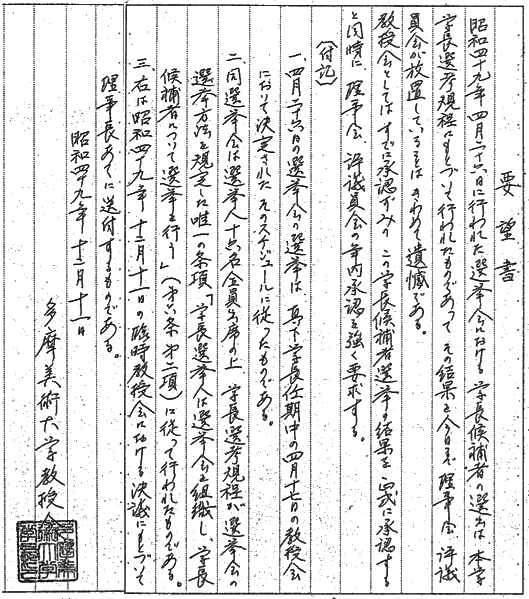 要望書
昭和四十九年四月二十六日に行われた選挙会における学長候補者の選出は 本学
学長選考規程にもとづいて行われたものであって その結果を今日まで理事会 評議
員会が放置していることはきわめて遺憾である。
教授会としてはすでに承認ずみの この学長候補者選挙の結果を 正式に承認する
と同時に 理事会 評議員会の年内承認を強く要求する。
(付記)
一、四月二十六日の選挙会の選挙は 真下学長任期中の四月十七日の教授会
において決定された そのスケジュールに従ったものである。
二、同選挙会は選挙人十六名全員出席の上 学長選考規程が選挙会の
選挙方法を規定した唯一の条項「学長選挙人は選挙会を組織し、学長
候補者について選挙を行う」(第六条 第二項)に従って行われたものである。
三、右は昭和四十九年十二月十一日の臨時教授会における決議にもとづいて
理事長あてに送付するものである。
昭和四十九年十二月十一日
多摩美術大学教授会